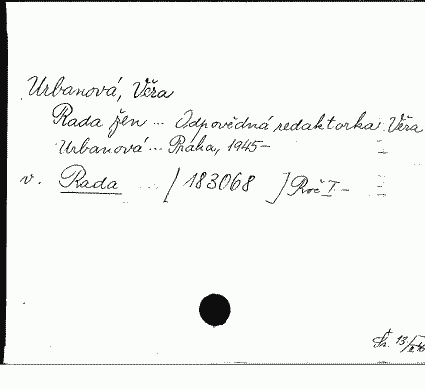 Urbanová, Věra
Rada žen ... Odpovědná redaktorka: Věra
Urbanová ... Praha, 1945-
v. Rada ... [183068] Roč I. -
Št. 13/